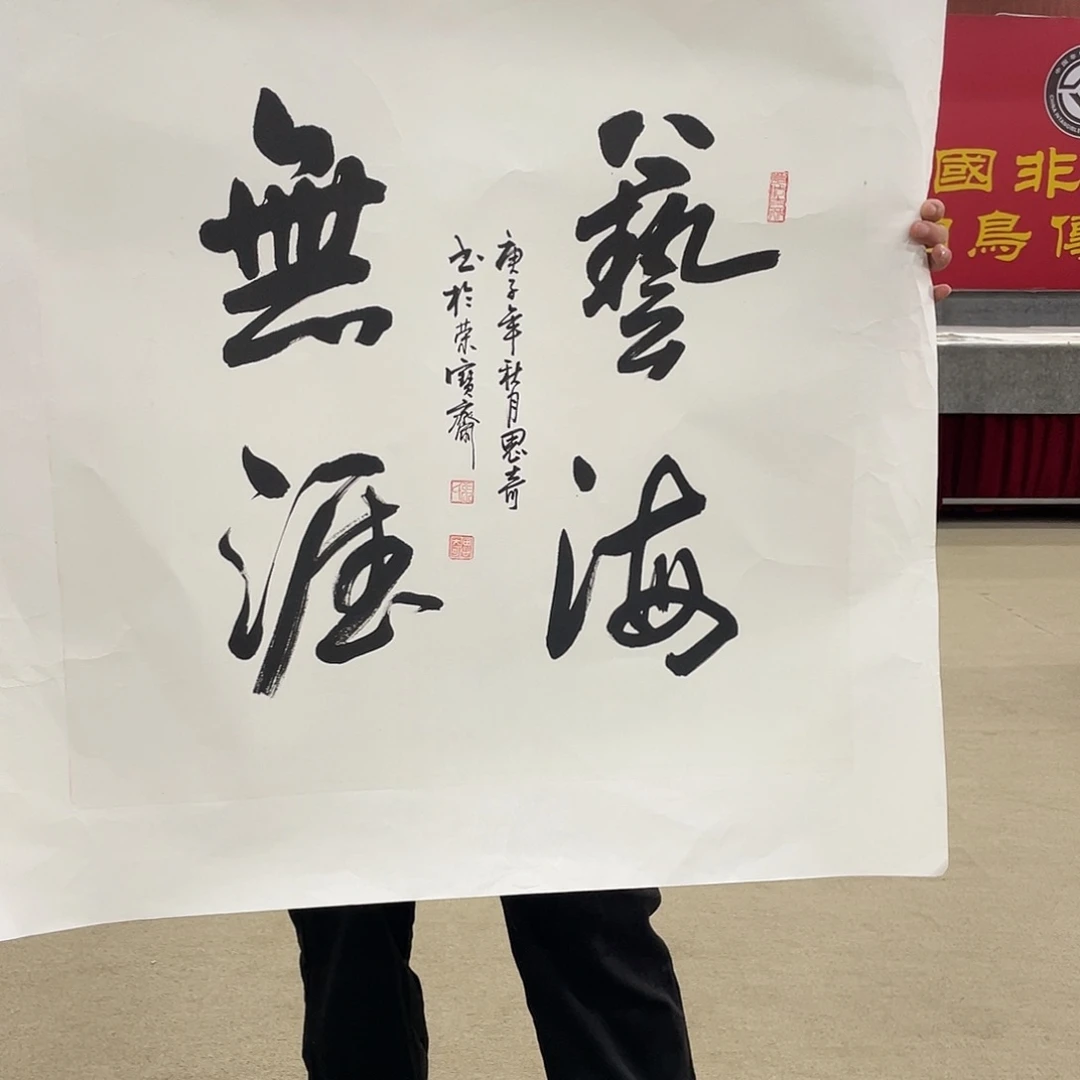 藝海
無涯
庚子年秋月思奇
书於荣寶齋
國非
鳥傳